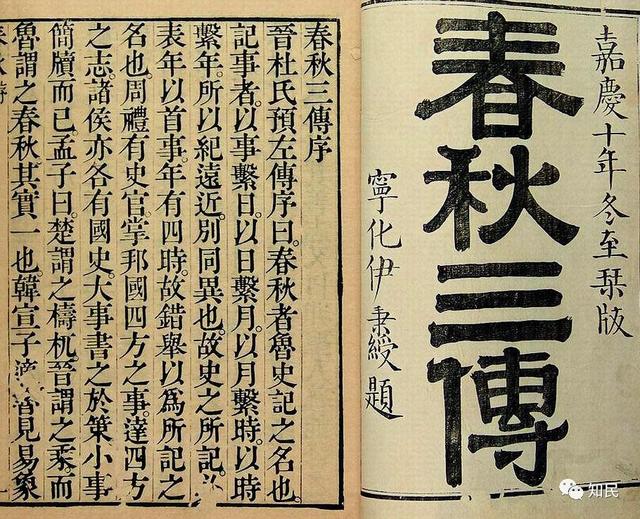 嘉慶十年冬至栞版
春秋三傳
寧化伊秉綬題
春秋三傳序
晉杜氏預左傳序曰。春秋者魯史記之名也。
記事者。以事繫日。以日繫月。以月繫時。以時
繫年。所以紀遠近。別同異也。故史之所記。必
表年以首事。年有四時。故錯舉以為所記之
名也。周禮有史官掌邦國四方之事。達四方
之志。諸侯亦各有國史。大事書之於策。小事
簡牘而已。孟子曰。楚謂之檮杌。晉謂之乘。而
魯謂之春秋。其實一也。韓宣子適魯。見易象
知民